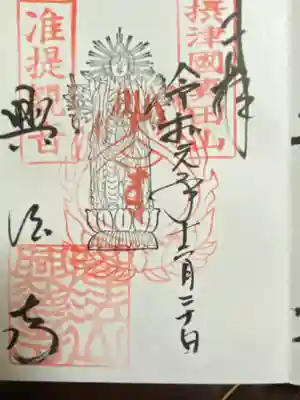 奉拝
摂津國
令和元年十一月二十日
准提觀音
興法寺